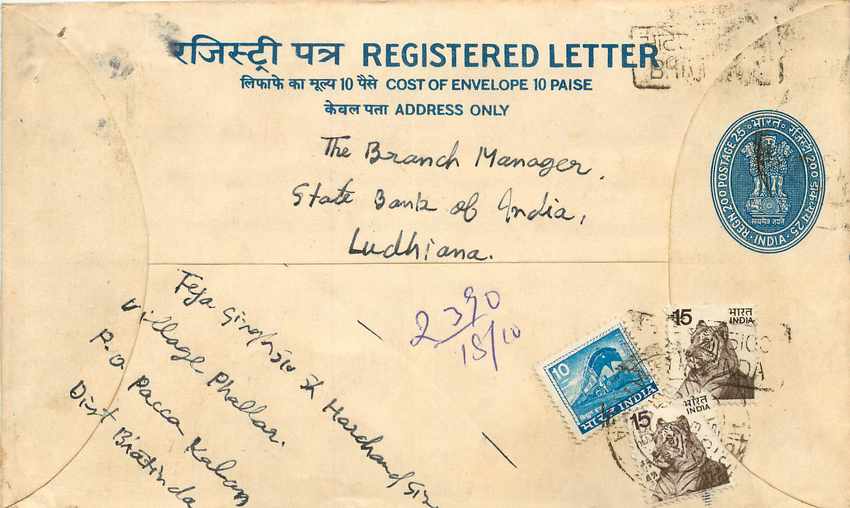 रजिस्ट्री पत्र REGISTERED LETTER
लिफाफे का मूल्य 10 पैसे COST OF ENVELOPE 10 PAISE
केवल पता ADDRESS ONLY
The Branch Manager,
State Bank of India,
Ludhiana.
REGN 200 POSTAGE 25 भारत
सत्यमेव जयते
INDIA
Teja Singh S/o Sh Harchand
Village Phallar.
P.O Pacca Kalan
Distt Bhatinda
2390
15/10
10
भारत INDIA
15 भारत
INDIA
15 भारत
INDIA